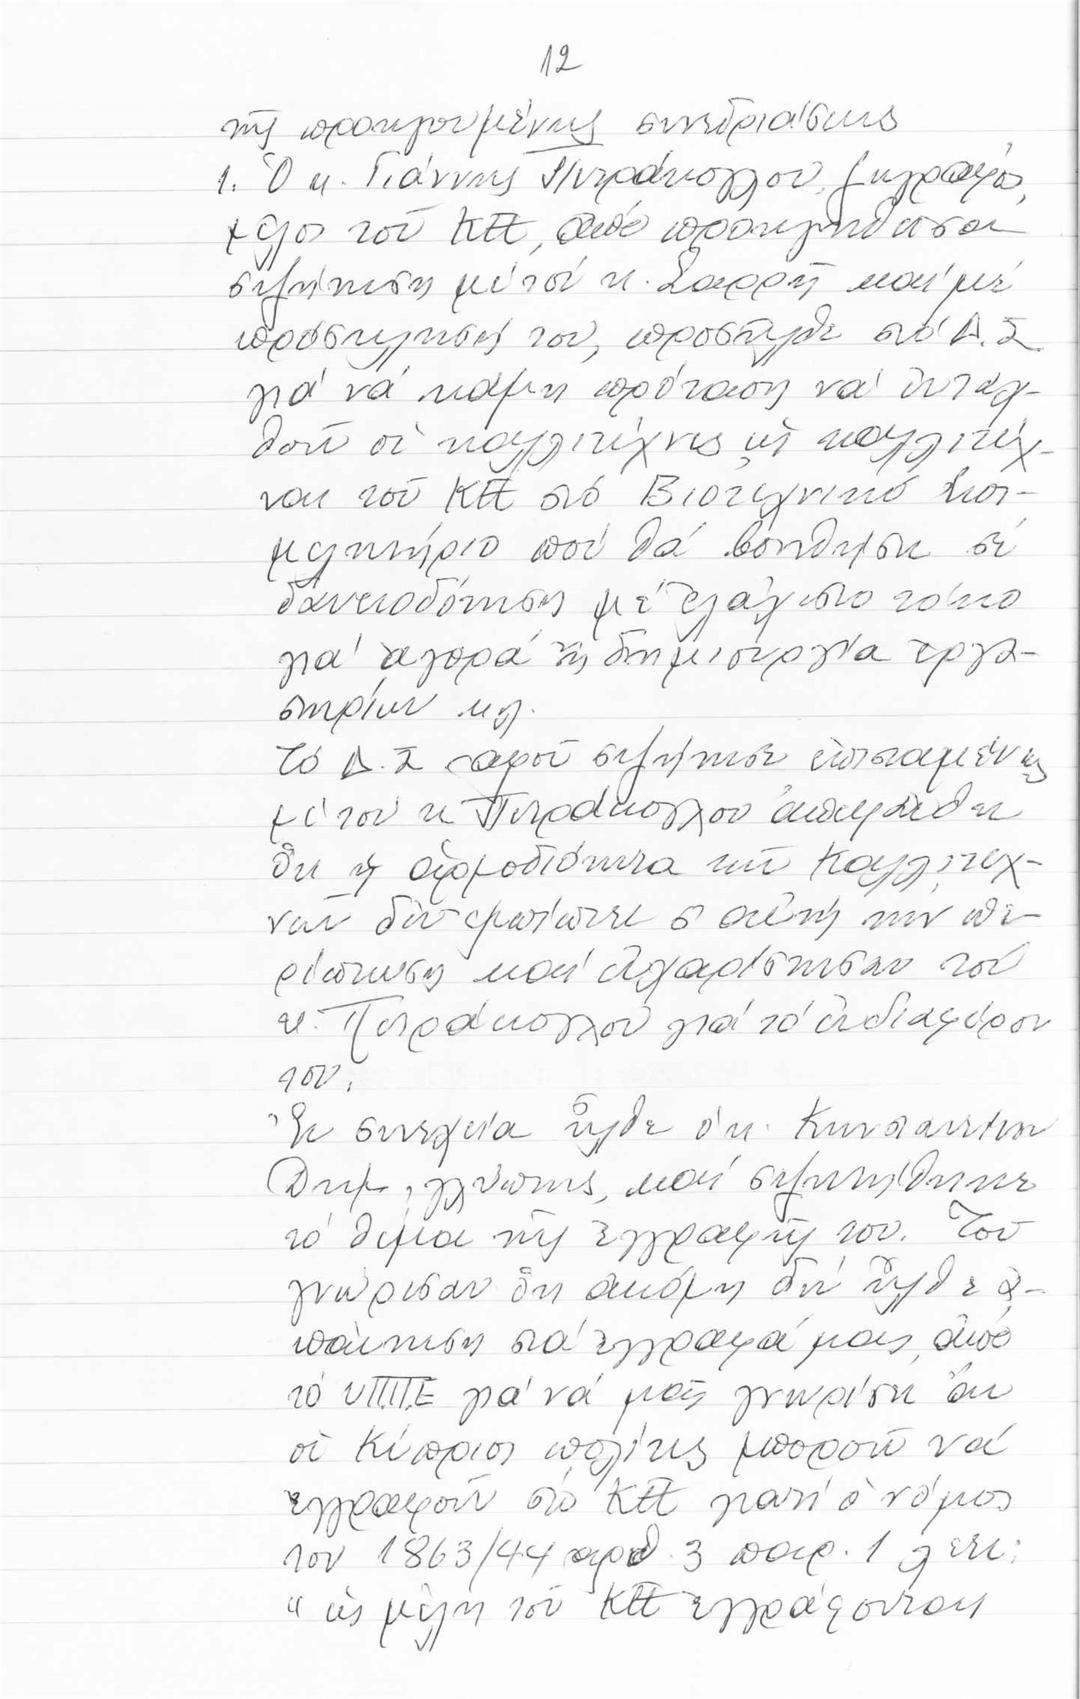 12
τῆς προηγουμένης συνεδριάσεως
1. Ὁ κ. Γιάννης Πετράκογλου, ζωγράφος,
μέλος τοῦ ΚΕΕ, ἀπό προηγηθεῖσα
συζήτηση μέ τόν κ. Σαρρῆ καί μέ
πρόσκλησή του, προσῆλθε στό Δ.Σ
γιά νά κάμη πρόταση νά ἐνταχ-
θοῦν οἱ καλλιτέχνες ὡς καλλιτέχ-
ναι τοῦ ΚΕΕ στό Βιοτεχνικό Ἐπι-
μελητήριο πού θά βοηθήση σέ
δανειοδότηση μέ ἐλάχιστο τόκο
γιά ἀγορά ἤ δημιουργία ἐργα-
στηρίων κλπ.
Τό Δ.Σ ἀφοῦ συζήτησε ἐπισταμένως
μέ τόν κ Πετράκογλου ἀπεφάνθη
ὅτι ἡ ἁρμοδιότητα τῶν Καλλιτεχ-
νῶν δέν ἐμπίπτει σ αὐτή τήν πε-
ρίπτωση καί εὐχαρίστησαν τόν
κ. Πετράκογλου γιά τό ἐνδιαφέρον
του.
Ἐν συνεχεία ἦλθε ὁ κ. Κωνσταντίνου
Δημ, γλύπτης, καί συζητήθηκε
τό θέμα τῆς ἐγγραφῆς του. Τοῦ
γνώρισαν ὅτι ἀκόμη δέν ἦλθε ἀ-
πάντηση στά ἔγγραφά μας, ἀπό
τό ΥΠΠΕ γιά νά μᾶς γνωρίση ἄν
οἱ Κύπριοι πολίτες μποροῦν νά
ἐγγραφοῦν στό ΚΕΕ γιατί ὁ νόμος
του 1863/44 αρθ. 3 παρ. 1 λέει:
" ὡς μέλη τοῦ ΚΕΕ ἐγγράφονται